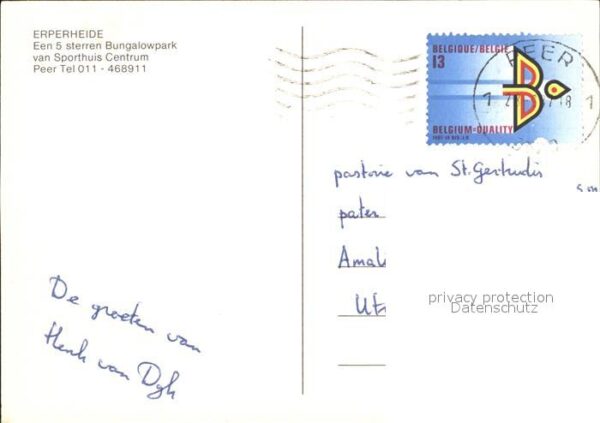 ERPERHEIDE
Een 5 sterren Bungalowpark
van Sporthuis Centrum
Peer Tel 011 - 468911
BELGIQUE/BELGIE
13
BELGIUM-QUALITY
PEER
pastorie van St. Gertrudis
pater
Amal
Ut
privacy protection
Datenschutz
De groeten van
Henk van Dyk